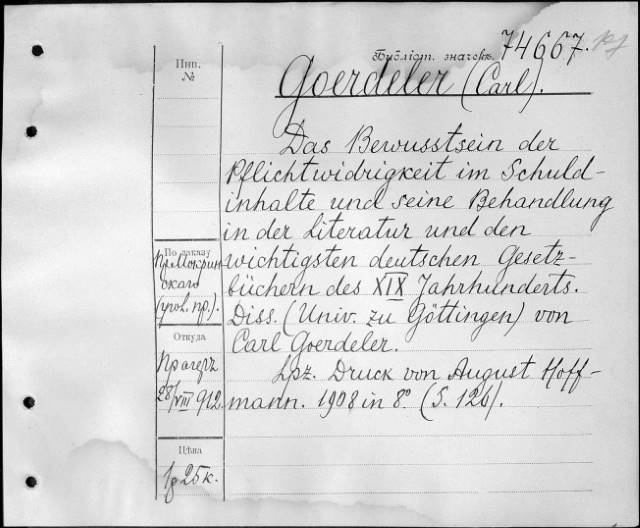 Библіот. значекъ. 74667.
Инв.
№
Goerdeler (Carl).
Das Bewusstsein der
Pflichtwidrigkeit im Schuld-
inhalte und seine Behandlung
in der Literatur und den
wichtigsten deutschen Gesetz-
büchern des XIX Jahrhunderts.
Diss. (Univ. zu Göttingen) von
Carl Goerdeler.
Lpz. Druck von August Hoff-
mann. 1908 in 8º (S. 126).
По заказу
скаго
(угол. пр.).
Откуда
Прагеръ
28/VIII 912
Цѣна
1р 25 к.